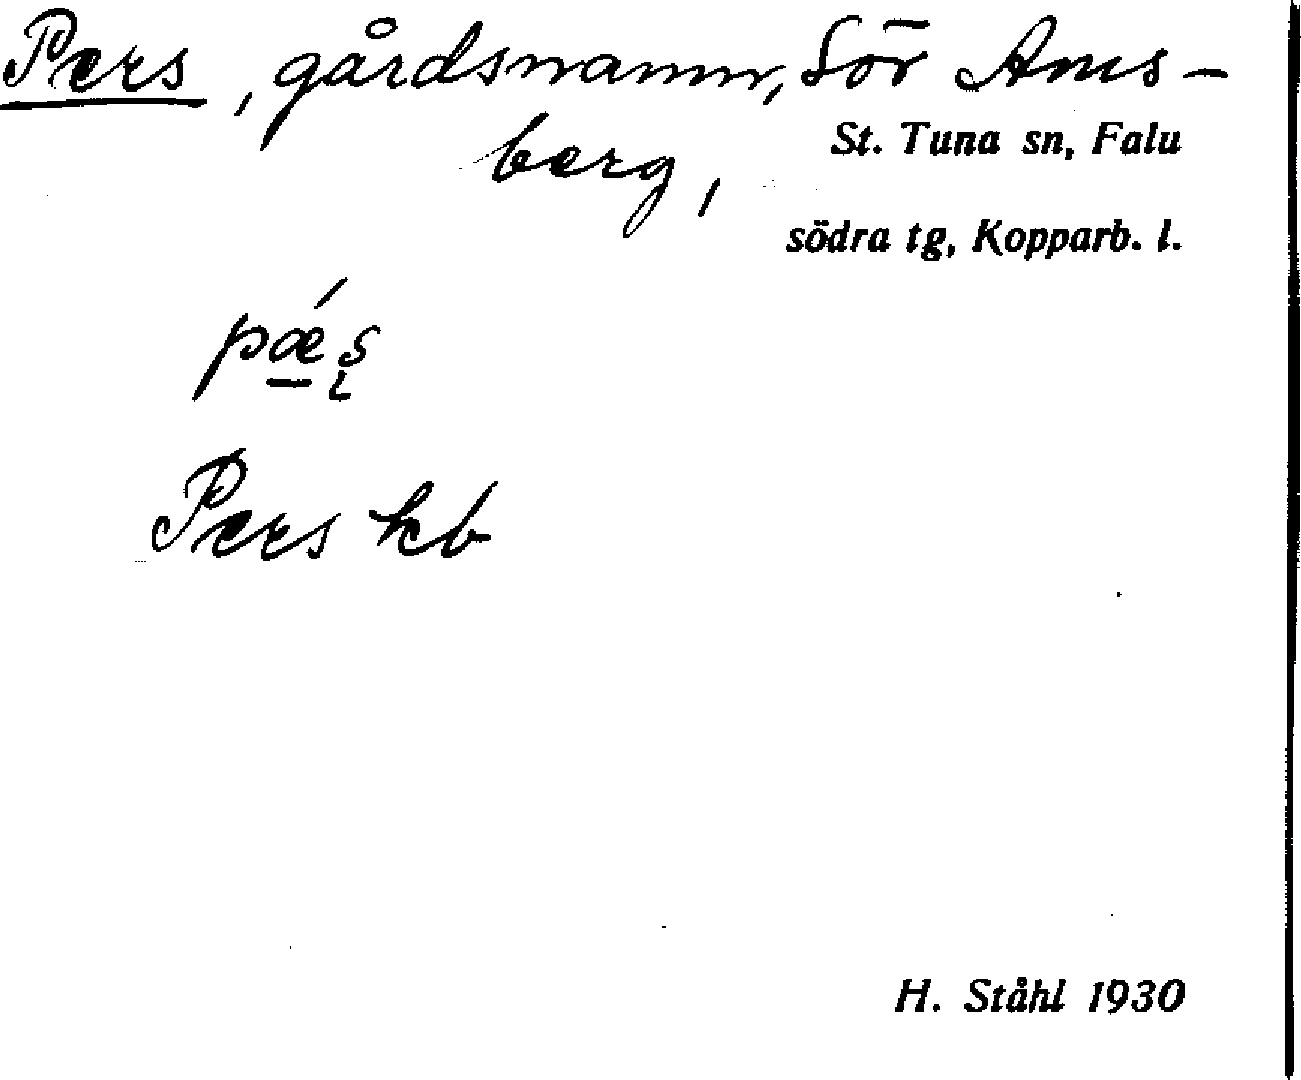 Pers, gårdsnamn, Sör Ams-
berg,
St. Tuna sn, Falu
södra tg, Kopparb. l.
pǽ̱s̨
Pers kb
H. Ståhl 1930